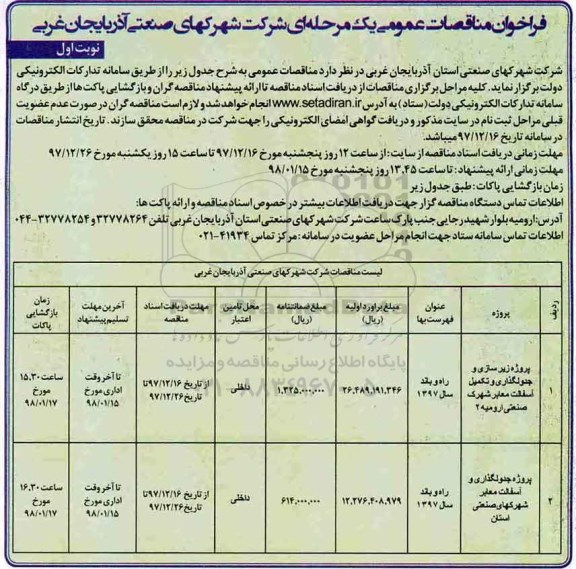 فراخوان مناقصات عمومی یک مرحله‌ای شرکت شهرکهای صنعتی آذربایجان غربی
نوبت اول
شرکت شهرکهای صنعتی استان آذربایجان غربی در نظر دارد مناقصات عمومی به شرح جدول زیر را از طریق سامانه تدارکات الکترونیکی
دولت برگزار نماید. کلیه مراحل برگزاری مناقصات از دریافت اسناد مناقصه تا ارائه پیشنهاد مناقصه گران و بازگشایی پاکت ها از طریق درگاه
سامانه تدارکات الکترونیکی دولت (ستاد) به آدرس www.setadiran.ir انجام خواهد شد و لازم است مناقصه گران در صورت عدم عضویت
قبلی مراحل ثبت نام در سایت مذکور و دریافت گواهی امضای الکترونیکی را جهت شرکت در مناقصه محقق سازند. تاریخ انتشار مناقصات
در سامانه تاریخ ۹۷/۱۲/۱۶ میباشد.
مهلت زمانی دریافت اسناد مناقصه از سایت: از ساعت ۱۲ روز پنجشنبه مورخ ۹۷/۱۲/۱۶ تا ساعت ۱۵ روز یکشنبه مورخ ۹۷/۱۲/۲۶
مهلت زمانی ارائه پیشنهاد: تا ساعت ۱۳.۴۵ روز پنجشنبه مورخ ۹۸/۰۱/۱۵
زمان بازگشایی پاکات: طبق جدول زیر
اطلاعات تماس دستگاه مناقصه گزار جهت دریافت اطلاعات بیشتر در خصوص اسناد مناقصه و ارائه پاکت ها:
آدرس: ارومیه بلوار شهید رجایی جنب پارک ساعت شرکت شهرکهای صنعتی استان آذربایجان غربی تلفن ۳۲۷۷۸۲۶۴ و ۳۲۷۷۸۲۵۴-۰۴۴
اطلاعات تماس سامانه ستاد جهت انجام مراحل عضویت در سامانه: مرکز تماس ۴۱۹۳۴-۰۲۱
لیست مناقصات شرکت شهرکهای صنعتی آذربایجان غربی
ردیف | پروژه | عنوان فهرست بها | مبلغ براورد اولیه (ریال) | مبلغ ضمانتنامه (ریال) | محل تامین اعتبار | مهلت دریافت اسناد مناقصه | آخرین مهلت تسلیم پیشنهاد | زمان بازگشایی پاکات
۱ | پروژه زیر سازی و جدولگذاری و تکمیل آسفالت معابر شهرک صنعتی ارومیه ۲ | راه و باند سال ۱۳۹۷ | ۲۶.۴۸۹.۱۹۱.۳۴۶ | ۱.۳۲۵.۰۰۰.۰۰۰ | داخلی | از تاریخ ۹۷/۱۲/۱۶ تا تاریخ ۹۷/۱۲/۲۶ | تا آخر وقت اداری مورخ ۹۸/۰۱/۱۵ | ساعت ۱۵.۳۰ مورخ ۹۸/۰۱/۱۷
۲ | پروژه جدولگذاری و آسفالت معابر شهرکهای صنعتی استان | راه و باند سال ۱۳۹۷ | ۱۲.۲۷۶.۴۰۸.۹۷۹ | ۶۱۴.۰۰۰.۰۰۰ | داخلی | از تاریخ ۹۷/۱۲/۱۶ تا تاریخ ۹۷/۱۲/۲۶ | تا آخر وقت اداری مورخ ۹۸/۰۱/۱۵ | ساعت ۱۶.۳۰ مورخ ۹۸/۰۱/۱۷
پایگاه اطلاع رسانی مناقصه و مزایده